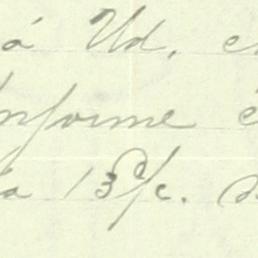 á Ud. e
nforme é
a 13 c/c. d